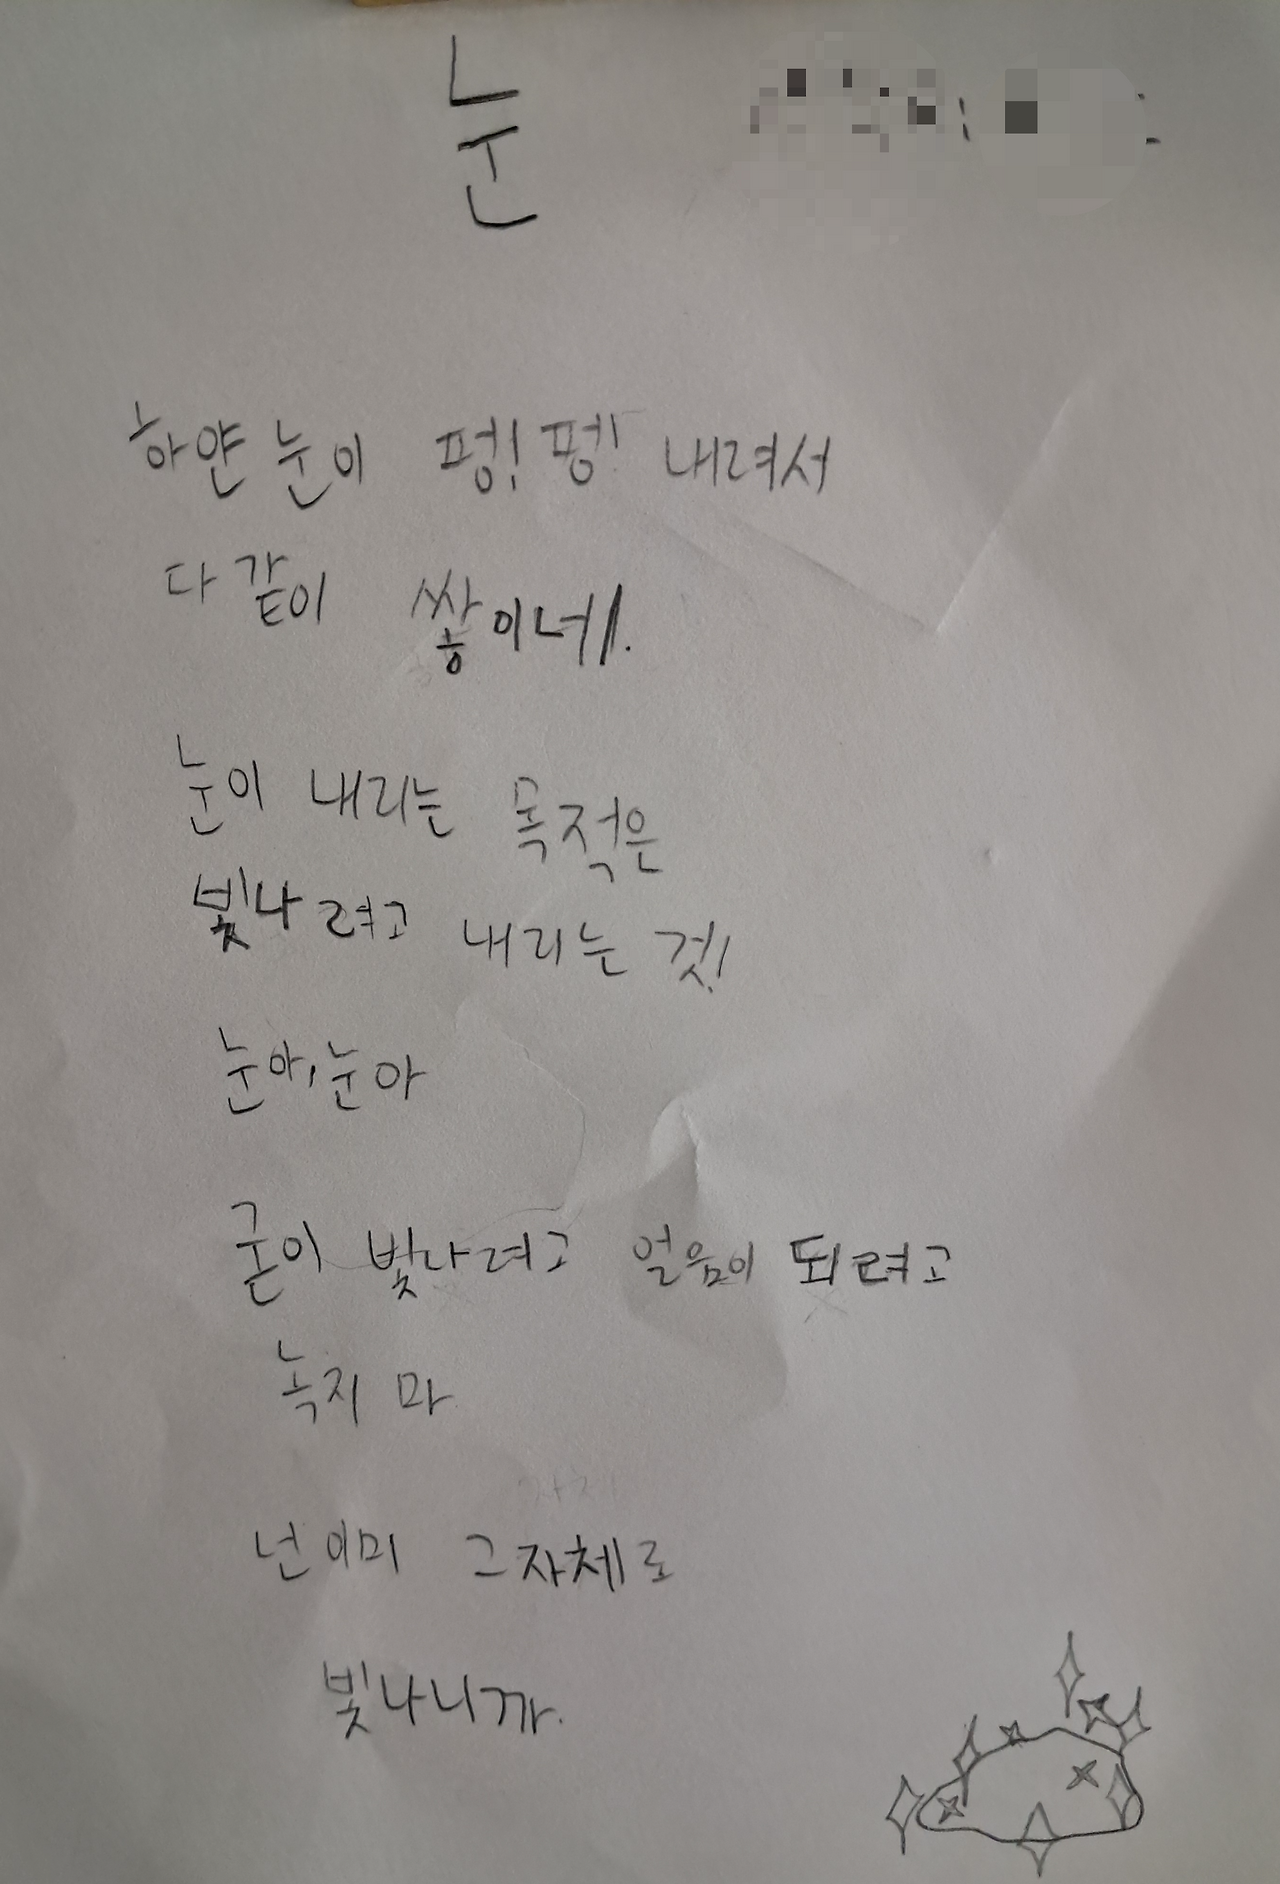 눈
하얀 눈이 펑! 펑! 내려서
다 같이 쌓이네!.
눈이 내리는 목적은
빛나려고 내리는 것!
눈아, 눈아
굳이 빛나려고 얼음이 되려고
녹지 마
넌 이미 그 자체로
빛나니까.